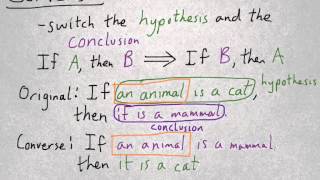 -switch the hypothesis and the
conclusion
If A, then B ⟹ If B, then A
Original: If an animal is a cat, hypothesis
then it is a mammal.
conclusion
Converse: If an animal is a mammal
then it is a cat